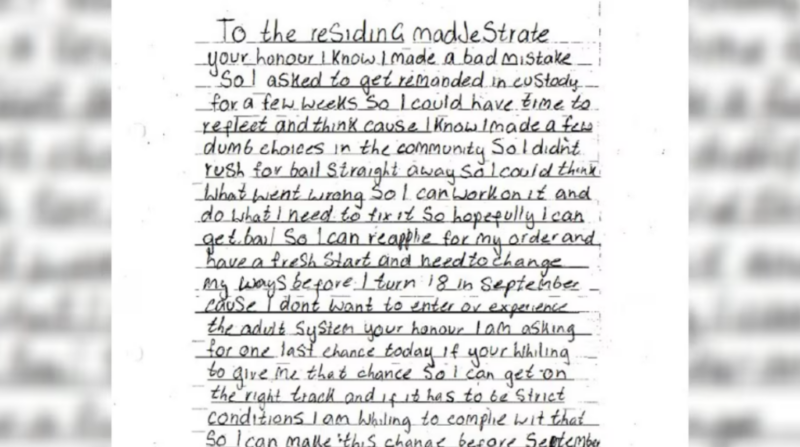 To the residing maddestrate
your honour I Know I made a bad mistake
So I asked to get remanded in custody
for a few weeks So I could have time to
reflect and think cause I Know I made a few
dumb choices in the community So I didn't
rush for bail straight away So I could think
What went wrong So I can work on it and
do what I need to fix it So hopefully I can
get bail So I can reapplie for my order and
have a fresh start and need to change
my ways before I turn 18 in September
cause I dont want to enter or experience
the adult System your honour I am asking
for one last chance today if your whiling
to give me that chance So I can get on
the right track and if it has to be strict
conditions I am whiling to complie wit that
So I can make this change before September